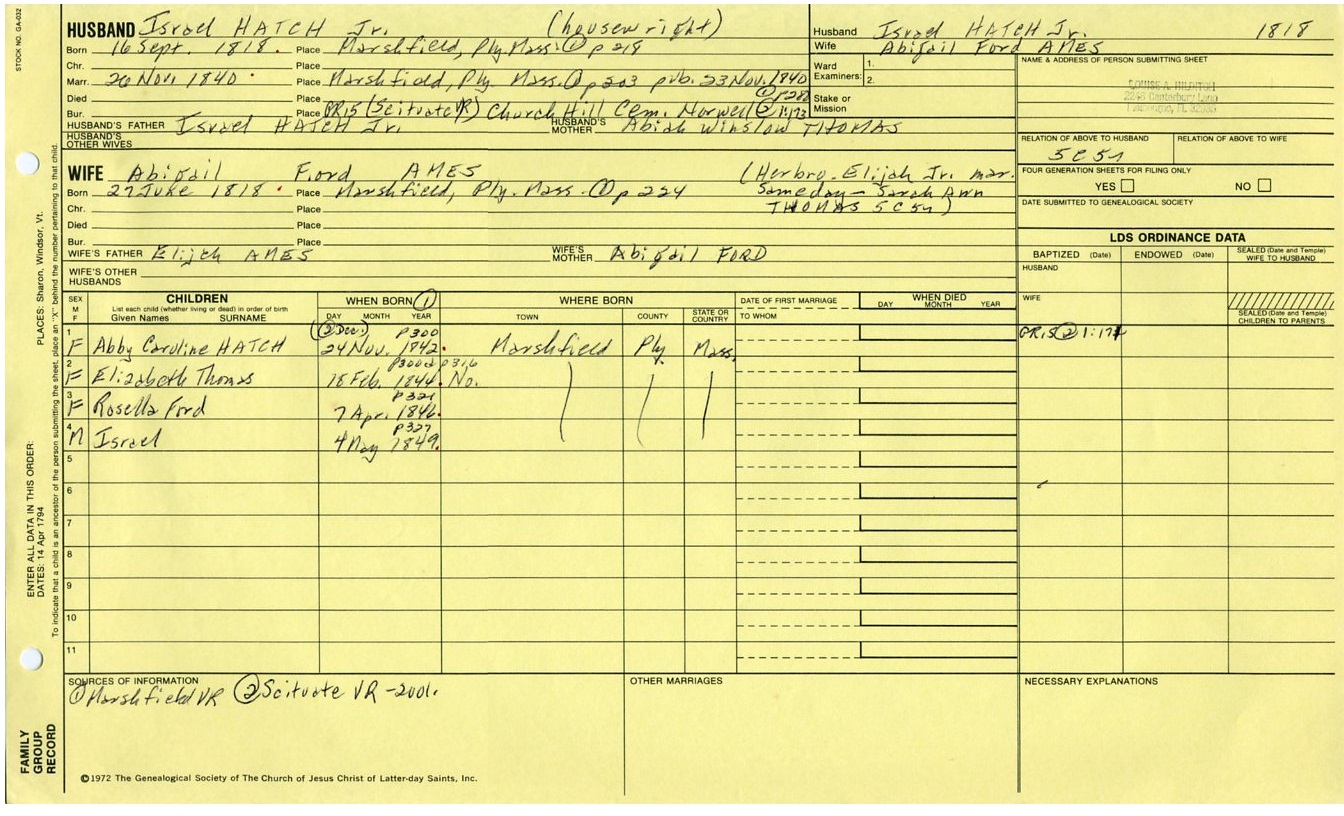 STOCK NO. GA-032
HUSBAND Israel HATCH Jr. (housewright)
Born 16 Sept. 1818. Place Marshfield, Ply. Mass. ① p 218
Chr. Place
Marr. 26 Nov. 1840. Place Marshfield, Ply. Mass. ① p 303 pub. 23 Nov. 1840
① p 282
Died Place
Bur. Place GR15 (Scituate VR) Church Hill Cem. Norwell ② 1:173
HUSBAND'S FATHER Israel HATCH Jr. HUSBAND'S MOTHER Abiah Winslow THOMAS
HUSBAND'S OTHER WIVES
WIFE Abigail Ford AMES (Her bro. Elijah Jr. mar.
Born 27 June 1818. Place Marshfield, Ply. Mass. ① p 224 Same day - Sarah Ann
Chr. Place THOMAS 5C5n)
Died Place
Bur. Place
WIFE'S FATHER Elijah AMES WIFE'S MOTHER Abigail FORD
WIFE'S OTHER HUSBANDS
Husband Israel HATCH Jr. 1818
Wife Abigail Ford AMES
Ward Examiners: 1.
2.
Stake or Mission
NAME & ADDRESS OF PERSON SUBMITTING SHEET
RELATION OF ABOVE TO HUSBAND RELATION OF ABOVE TO WIFE
5C5n
FOUR GENERATION SHEETS FOR FILING ONLY
YES NO
DATE SUBMITTED TO GENEALOGICAL SOCIETY
LDS ORDINANCE DATA
BAPTIZED (Date) ENDOWED (Date) SEALED (Date and Temple) WIFE TO HUSBAND
HUSBAND
WIFE
SEALED (Date and Temple) CHILDREN TO PARENTS
SEX M F CHILDREN WHEN BORN ① WHERE BORN DATE OF FIRST MARRIAGE WHEN DIED
List each child (whether living or dead) in order of birth
Given Names SURNAME DAY MONTH YEAR TOWN COUNTY STATE OR COUNTRY TO WHOM DAY MONTH YEAR
(② Dec.) p300
1 F Abby Caroline HATCH 24 Nov. 1842. Marshfield Ply. Mass. GR15 ② 1:174
p300 & p316
2 F Elizabeth Thomas 18 Feb. 1844. No.
p321
3 F Rosella Ford 7 Apr. 1846.
p327
4 M Israel 4 May 1849.
5
6
7
8
9
10
11
SOURCES OF INFORMATION
① Marshfield VR ② Scituate VR - 2001.
OTHER MARRIAGES
NECESSARY EXPLANATIONS
©1972 The Genealogical Society of The Church of Jesus Christ of Latter-day Saints, Inc.
FAMILY GROUP RECORD
ENTER ALL DATA IN THIS ORDER:
DATES: 14 Apr 1794 PLACES: Sharon, Windsor, Vt.
To indicate that a child is an ancestor of the person submitting the sheet, place an "X" behind the number pertaining to that child.